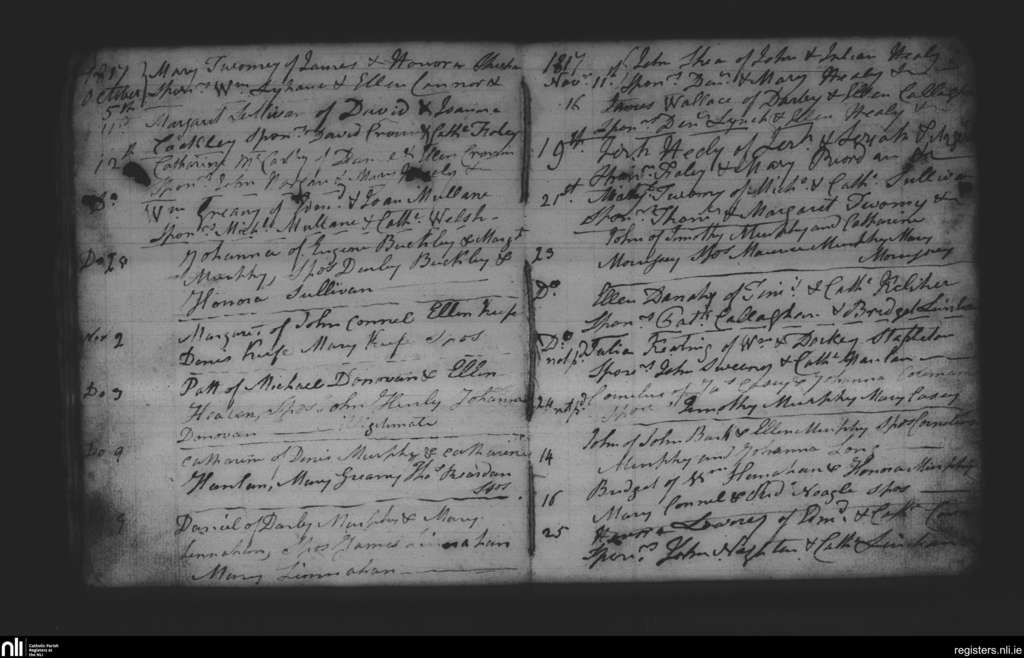 1817 Mary Twomey of James & Honora
October Sponrs Wm Lyhane & Ellen Connor
5th
11th Margaret Sullivan of David & Joanna
Buckley Sponrs David Cronin & Cathe Foley
12th Catharine McCarthy of Daniel & Ellen Cronin
Sponrs John & Mary
Do Wm Greany of Edmd & Joan Mullane
Sponrs Michl Mullane & Cathe Welsh
Do 28 Johanna of Eugene Buckley & Margt
Murphy, Spos Darby Buckley &
Honora Sullivan
Nov 2 Margaret of John Connel Ellen Keefe
Denis Keefe Mary Keefe Spos
Do 3 Patt of Michael Donovan & Ellen
Healan, Spos John Henly Johanna
Donovan Illigitimate
Do 9 Catharine of Denis Murphy & Catharine
Hanlan, Mary Greany Thos Reardan
Spos
9 Daniel of Darby Murphy & Mary
Linnahan, Spos James Linnahan
Mary Linnahan
1817 John Shea of John & Julian Healy
Novr 11th Sponrs Danl & Mary Healy
16 James Wallace of Darby & Ellen Callaghan
Sponrs Denl Lynch & Ellen Healy
19th Jerh Healy of Jerh &
Foley & Mary Riordan
21st Matty Twomy of Michl & Cathe Sullivan
Sponrs Thoms & Margaret Twomy
John of Timothy Murphy and Catharine
23 Morrysey Spos Maurice Murphy Mary
Morrysey
Do Ellen Danahy of Timy & Cathe Keliher
Sponrs Patk Callaghan & Bridget Linihan
Do Julia Keating of Wm & Dorkey Stapleton
not pd Sponrs John Sweeney & Cathe Hanlan
24 not pd Cornelius of Casey & Johanna
Spos Timothy Murphy Mary Casey
John of John Buck & Ellen Murphy Spos Cornelius
14 Murphy and Johanna
Bridget of Wm Henahan & Honora Murphy
16 Mary Connel & Neagle Spos
25 of Edmd & Cathe
Sponrs John Naghten & Cathe Linihan
nli
Catholic Parish
Registers at
the NLI
registers.nli.ie